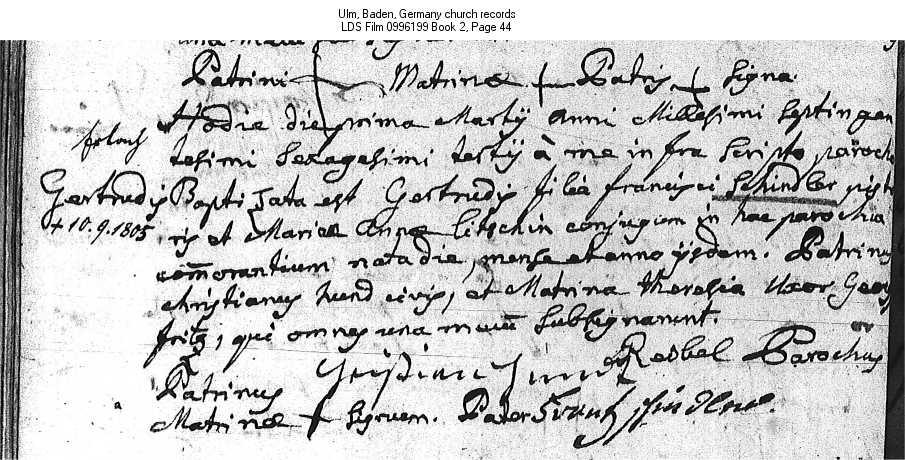 Ulm, Baden, Germany church records
LDS Film 0996199 Book 2, Page 44
Patrini + Matrinæ + Patris + signa.
Hodie die prima Martÿ anni Millesimi septingen
tesimi sexagesimi tertÿ à me infra scripto parocho
Gertrudis Baptizata est Gertrudis filia francisci Schindler pisto
+ 10.9.1805
ris et Mariæ Annæ litschin conjugum in hac parochia
com̄orantium nata die, mense et anno ÿsdem. Patrinus
christianus hund civis, et Matrina Theresia Uxor Georg
fritz, qui omnes una mecum subsignarunt.
Reebel Parochus
Patrinus
Matrinæ + signum. Pater